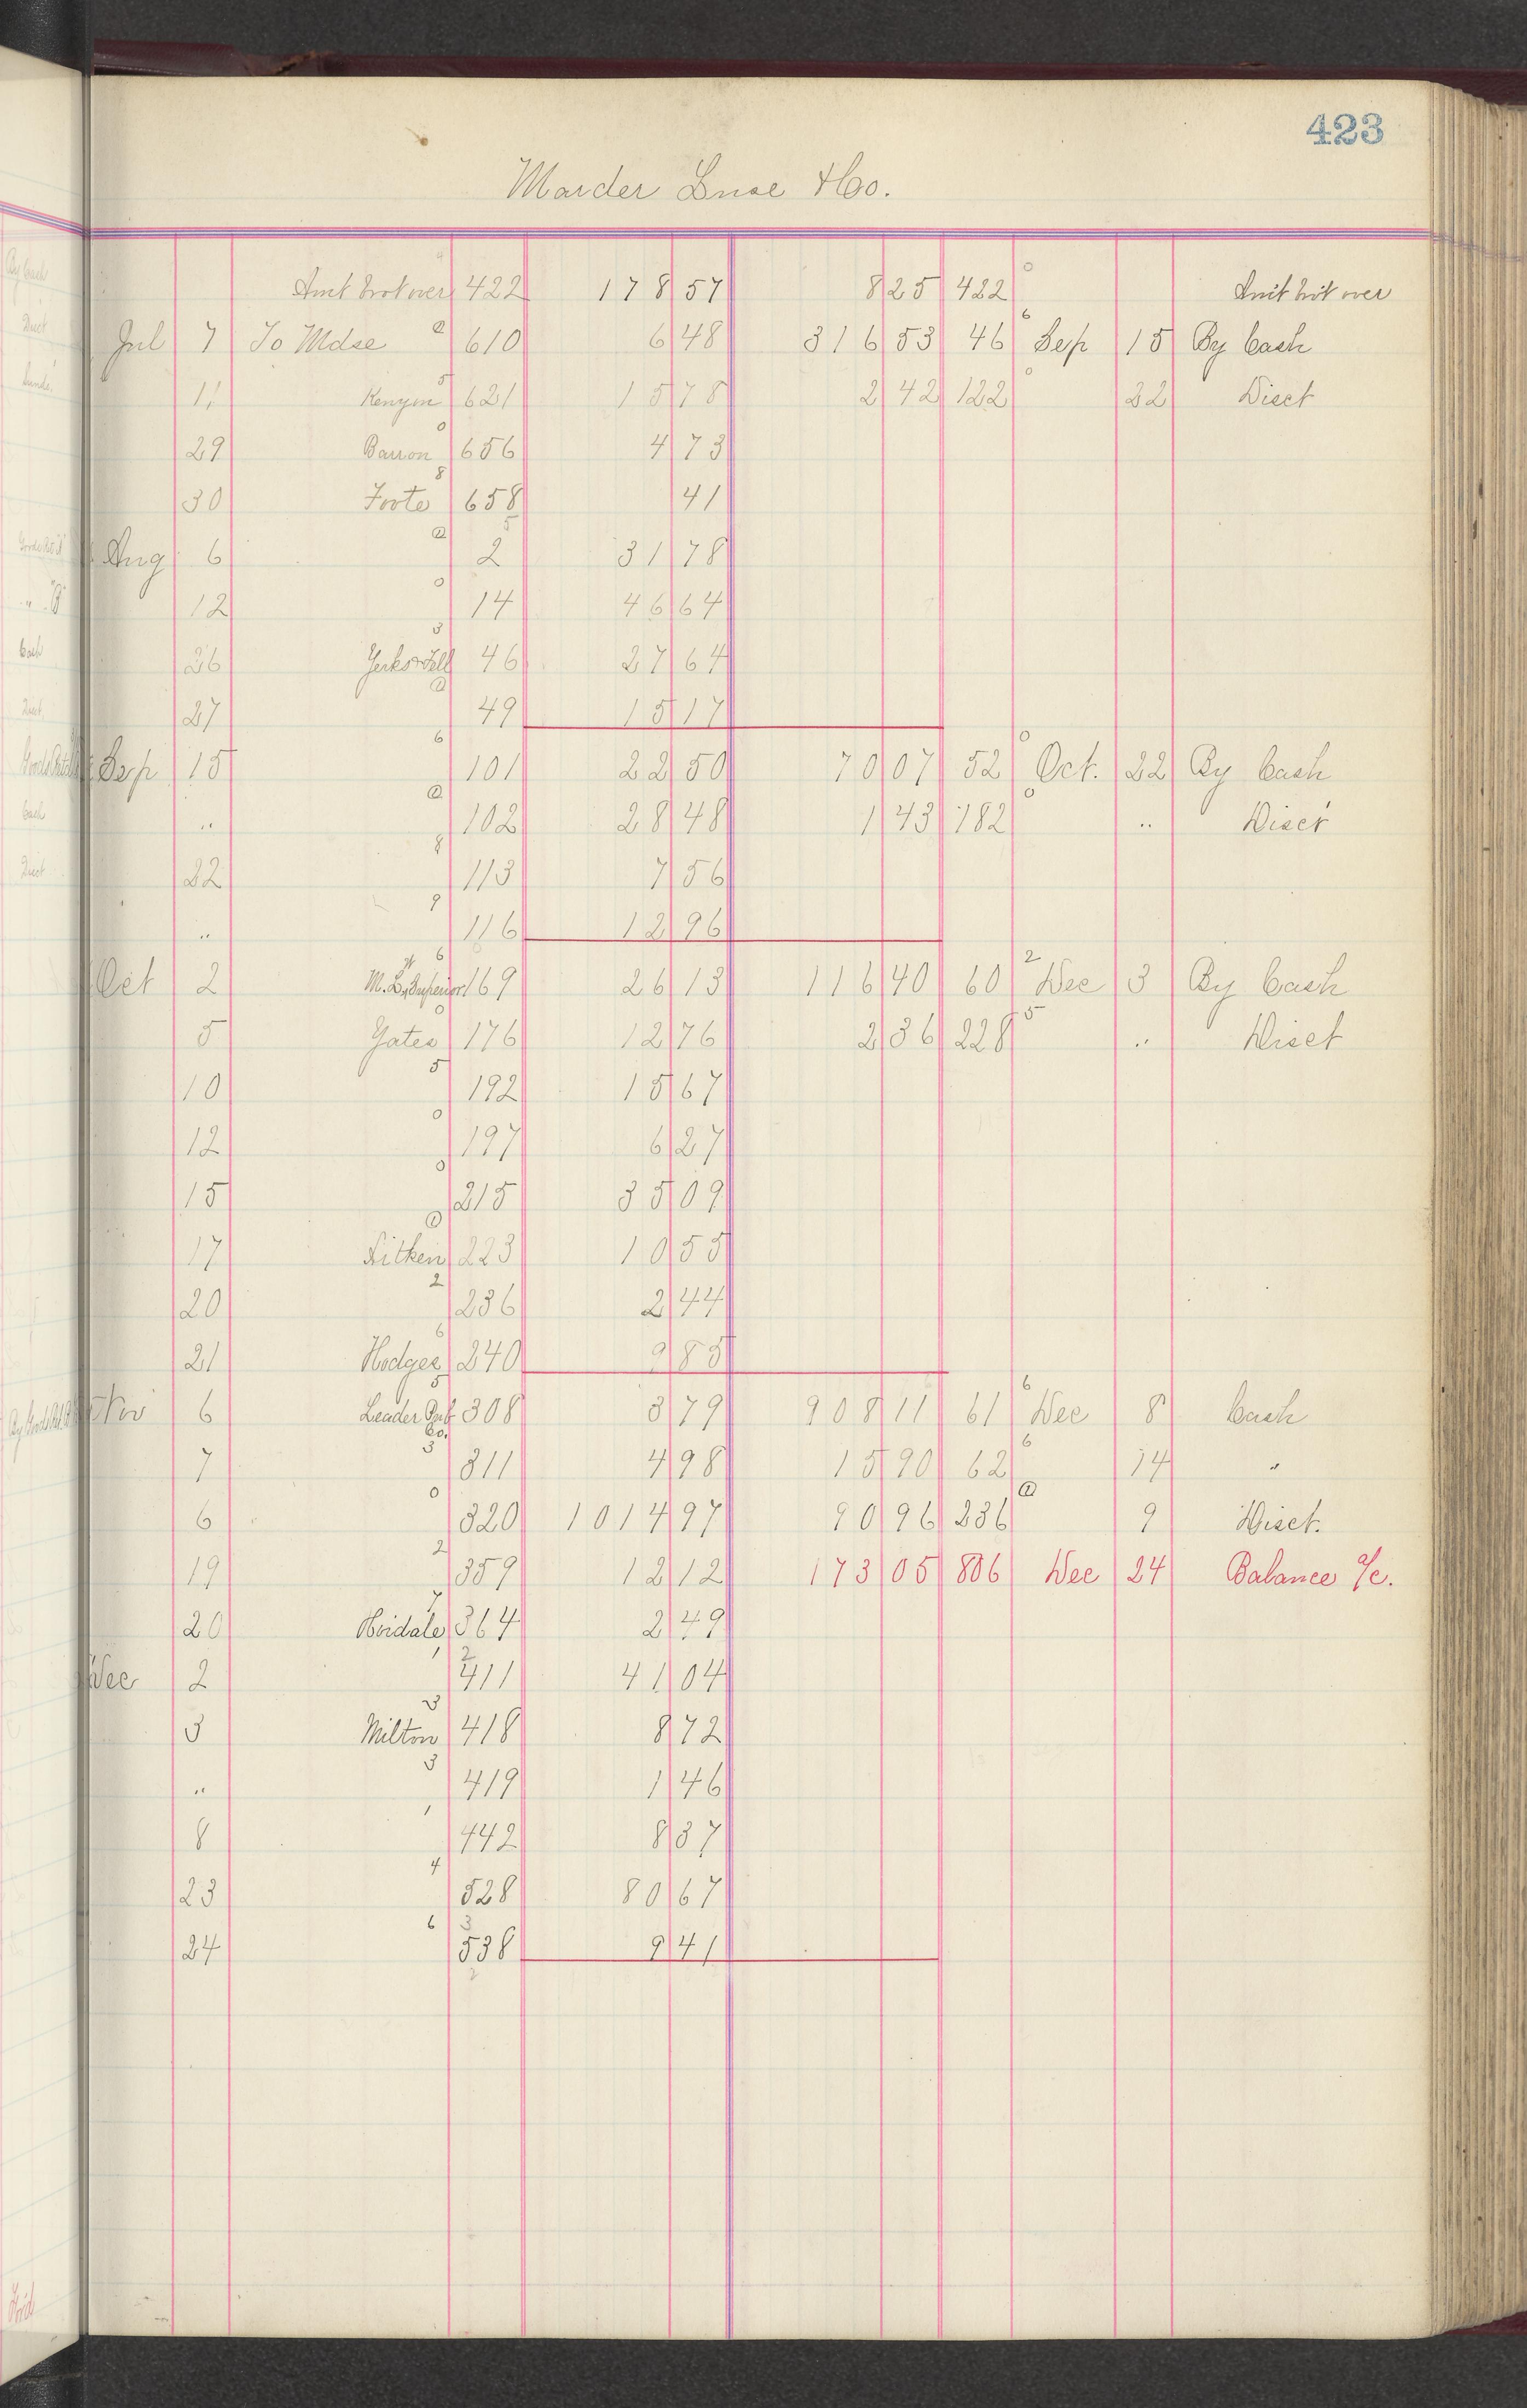 423
Marder Luse & Co.
Amt brot over 422 178 57 8 25 422 Amt brot over
Jul 7 To Mdse 610 6 48 316 53 46 Sep 15 By Cash
11 Kenyon 621 15 78 2 42 122 22 Disct
29 Barron 656 4 73
30 Foote 658 41
Aug 6 2 31 78
12 14 46 64
26 46 27 64
27 49 15 17
Sep 15 101 22 50 70 07 52 Oct. 22 By Cash
" 102 28 48 1 43 182 " Disct
22 113 7 56
" 116 12 96
Oct 2 M. L. Superior 169 26 13 116 40 60 Dec 3 By Cash
5 Yates 176 12 76 2 36 228 " Disct
10 192 15 67
12 197 6 27
15 215 35 09
17 Aitken 223 10 55
20 236 2 44
21 Hodges 240 9 85
Nov 6 Leader Pub Co. 308 3 79 908 11 61 Dec 8 Cash
7 311 4 98 15 90 62 14 "
6 320 1014 97 90 96 236 9 Disct.
19 359 12 12 173 05 806 Dec 24 Balance a/c.
20 364 2 49
Dec 2 411 41 04
3 Milton 418 8 72
" 419 1 46
8 442 8 37
23 528 80 67
24 538 9 41